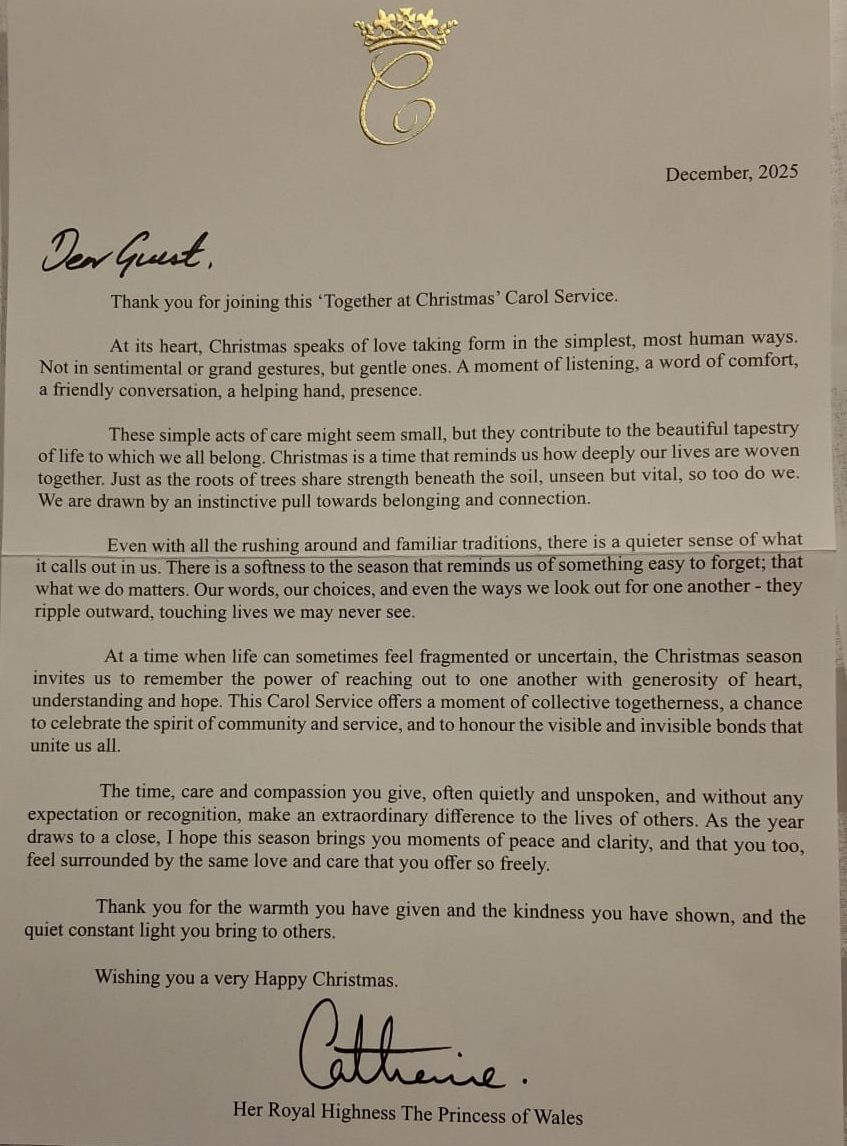 C
December, 2025
Dear Guest,
Thank you for joining this ‘Together at Christmas’ Carol Service.
At its heart, Christmas speaks of love taking form in the simplest, most human ways.
Not in sentimental or grand gestures, but gentle ones. A moment of listening, a word of comfort,
a friendly conversation, a helping hand, presence.
These simple acts of care might seem small, but they contribute to the beautiful tapestry
of life to which we all belong. Christmas is a time that reminds us how deeply our lives are woven
together. Just as the roots of trees share strength beneath the soil, unseen but vital, so too do we.
We are drawn by an instinctive pull towards belonging and connection.
Even with all the rushing around and familiar traditions, there is a quieter sense of what
it calls out in us. There is a softness to the season that reminds us of something easy to forget; that
what we do matters. Our words, our choices, and even the ways we look out for one another - they
ripple outward, touching lives we may never see.
At a time when life can sometimes feel fragmented or uncertain, the Christmas season
invites us to remember the power of reaching out to one another with generosity of heart,
understanding and hope. This Carol Service offers a moment of collective togetherness, a chance
to celebrate the spirit of community and service, and to honour the visible and invisible bonds that
unite us all.
The time, care and compassion you give, often quietly and unspoken, and without any
expectation or recognition, make an extraordinary difference to the lives of others. As the year
draws to a close, I hope this season brings you moments of peace and clarity, and that you too,
feel surrounded by the same love and care that you offer so freely.
Thank you for the warmth you have given and the kindness you have shown, and the
quiet constant light you bring to others.
Wishing you a very Happy Christmas.
Catherine.
Her Royal Highness The Princess of Wales